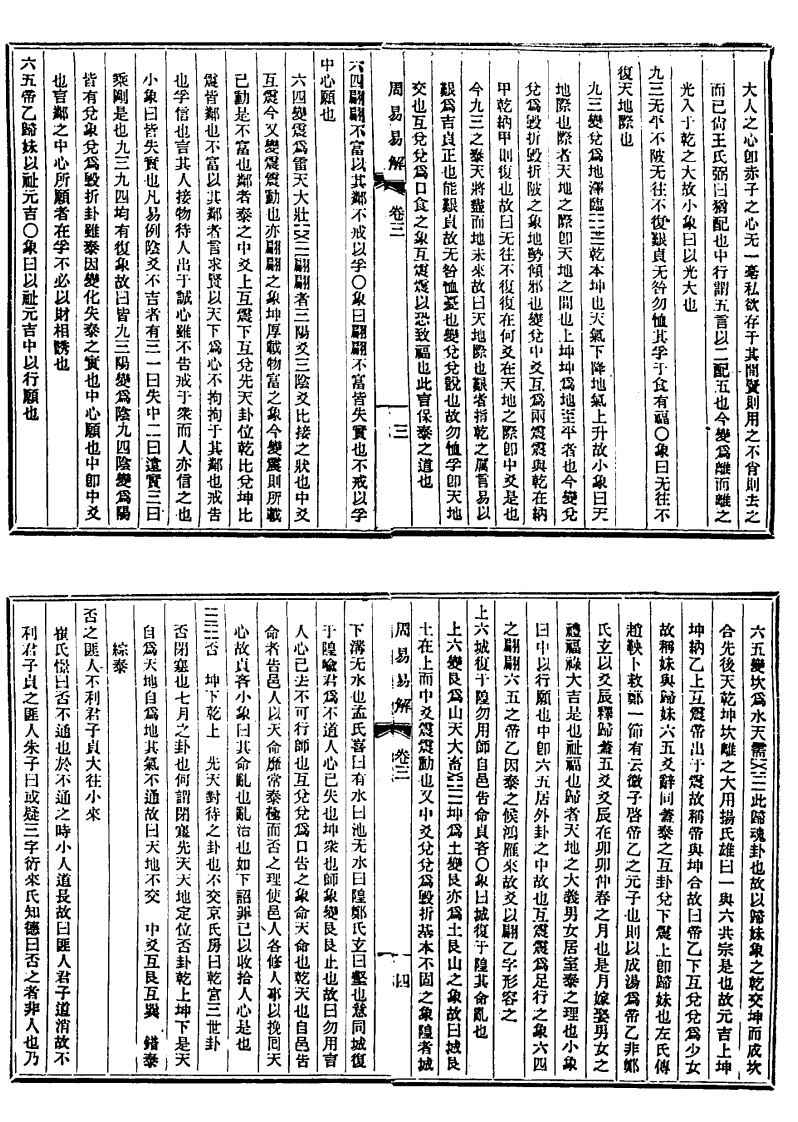 大人之心卽赤子之心无一毫私欲存于其間賢則用之不肯則去之
而已尙王氏弼曰猶配也中行謂五言以二配五也今變爲離而離之
光入于乾之大故小象曰以光大也
九三无平不陂无往不復艱貞无咎勿恤其孚于食有福〇象曰无往不
復天地際也
九三變兌爲地澤臨乾本坤也天氣下降地氣上升故小象曰天
地際也際者天地之際卽天地之間也上坤坤爲地至平者也今變兌
兌爲毀折毀折陂之象地勢傾邪也變兌中爻互爲兩震震與乾在納
甲乾納甲則復也故曰无往不復復在何爻在天地之際卽中爻是也
今九三之泰天將盡而地未來故曰天地際也艱者指乾之厲言易以
艱爲吉貞正也能艱貞故无咎恤憂也變兌兌說也故勿恤孚卽天地
交也互兌兌爲口食之象互震震以恐致福也此言保泰之道也
周易易解
卷三
三
六四翩翩不富以其鄰不戒以孚〇象曰翩翩不富皆失實也不戒以孚
中心願也
六四變震爲雷天大壯翩翩者三陽爻三陰爻比接之狀也中爻
互震今又變震震動也亦翩翩之象坤厚載物富之象今變震則所載
已動是不富也鄰者泰之中爻上互震下互兌先天卦位乾比兌坤比
震皆鄰也不富以其鄰者言求賢以天下爲心不拘拘于其鄰也戒告
也孚信也言其人接物待人出于誠心雖不告戒于衆而人亦信之也
小象曰皆失實也凡易例陰爻不吉者有三一曰失中二曰遠實三曰
乘剛是也九三九四均有復象故曰皆九三陽變爲陰九四陰變爲陽
皆有兌象兌爲毀折卦雖泰因變化失泰之實也中心願也中卽中爻
也言鄰之中心所願者在孚不必以財相誘也
六五帝乙歸妹以祉元吉〇象曰以祉元吉中以行願也
六五變坎爲水天需此歸魂卦也故以歸妹象之乾交坤而成坎
合先後天乾坤坎離之大用揚氏雄曰一與六共宗是也故元吉上坤
坤納乙上互震帝出于震故稱帝與坤合故曰帝乙下互兌兌爲少女
故稱妹與歸妹六五爻辭同蓋泰之互卦兌下震上卽歸妹也左氏傳
趙鞅卜救鄭一節有云微子啓帝乙之元子也則以成湯爲帝乙非鄭
氏玄以爻辰釋歸蓋五爻爻辰在卯卯仲春之月也是月嫁娶男女之
禮福祿大吉是也祉福也歸者天地之大義男女居室泰之理也小象
曰中以行願也中卽六五居外卦之中故也互震震爲足行之象六四
之翩翩六五之帝乙因泰之候鴻雁來故爻以翩乙字形容之
上六城復于隍勿用師自邑告命貞吝〇象曰城復于隍其命亂也
上六變艮爲山天大畜坤爲土變艮亦爲土艮山之象故曰城艮
土在上而中爻震震動也又中爻兌兌爲毀折基本不固之象隍者城
周易易解
卷三
四
下溝无水也孟氏喜曰有水曰池无水曰隍鄭氏玄曰壑也意同城復
于隍喩君爲不道人心已失也坤衆也師象變艮艮止也故曰勿用言
人心已去不可行師也互兌兌爲口告之象命天命也乾天也自邑告
命者皆邑人以天命靡常泰極而否之理使邑人各修人事以挽囘天
心故貞吝小象曰其命亂也亂治也如下詔罪已以收拾人心是也
否　坤下乾上　先天對待之卦也不交京氏房曰乾宮三世卦
否閉塞也七月之卦也何謂閉塞先天天地定位否卦乾上坤下是天
自爲天地自爲地其氣不通故曰天地不交　中爻互艮互巽　錯泰
綜泰
否之匪人不利君子貞大往小來
崔氏憬曰否不通也於不通之時小人道長故曰匪人君子道消故不
利君子貞之匪人朱子曰或疑三字衍來氏知德曰否之者非人也乃